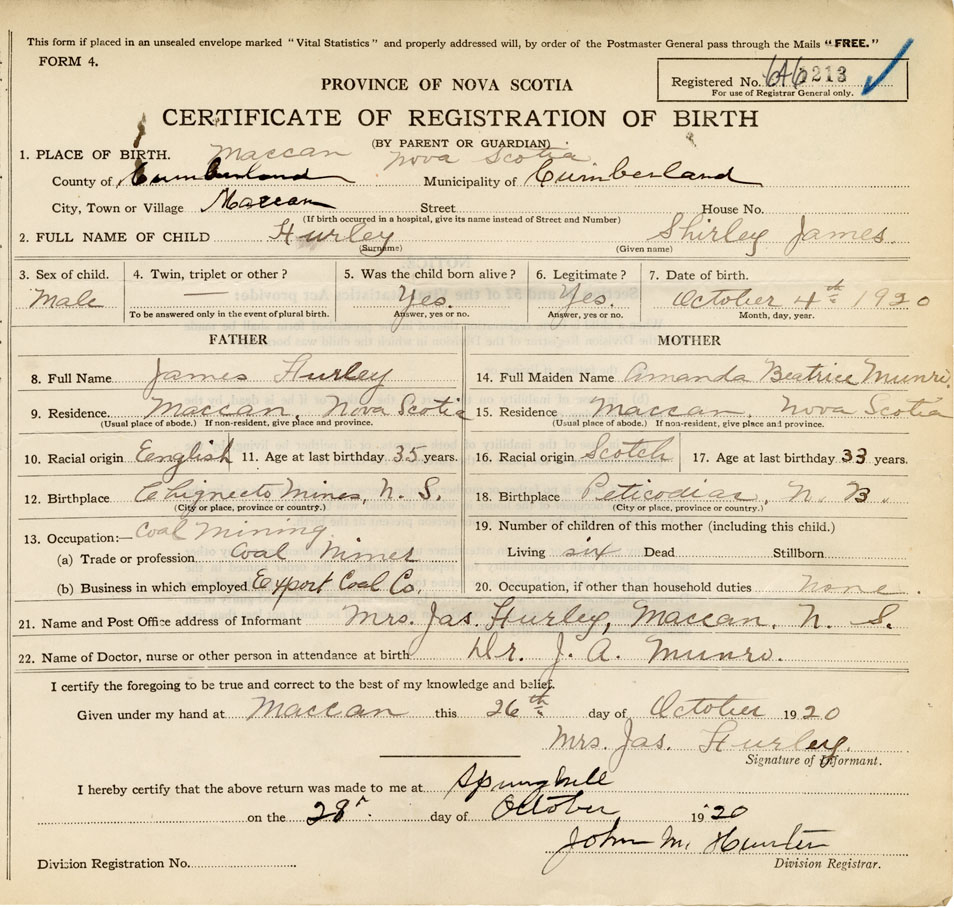 This form if placed in an unsealed envelope marked "Vital Statistics" and properly addressed will, by order of the Postmaster General pass through the Mails "FREE."
FORM 4.
Registered No. 213
For use of Registrar General only.
PROVINCE OF NOVA SCOTIA
CERTIFICATE OF REGISTRATION OF BIRTH
(BY PARENT OR GUARDIAN)
1. PLACE OF BIRTH. Maccan Nova Scotia
County of Cumberland Municipality of Cumberland
City, Town or Village Maccan Street House No.
(If birth occurred in a hospital, give its name instead of Street and Number)
2. FULL NAME OF CHILD Hurley Shirley James
(Surname) (Given name)
3. Sex of child. 4. Twin, triplet or other? 5. Was the child born alive? 6. Legitimate? 7. Date of birth.
Male — Yes. Yes. October 4th 1920
To be answered only in the event of plural birth. Answer, yes or no. Answer, yes or no. Month, day, year.
FATHER
8. Full Name James Hurley
9. Residence Maccan, Nova Scotia
(Usual place of abode.) If non-resident, give place and province.
10. Racial origin English 11. Age at last birthday 35 years.
12. Birthplace Chignecto Mines, N. S.
(City or place, province or country.)
13. Occupation:— Coal Mining
(a) Trade or profession Coal Miner
(b) Business in which employed Export Coal Co.
MOTHER
14. Full Maiden Name Amanda Beatrice Munro.
15. Residence Maccan, Nova Scotia
(Usual place of abode.) If non-resident, give place and province.
16. Racial origin Scotch 17. Age at last birthday 33 years.
18. Birthplace Peticodiac, N. B.
(City or place, province or country.)
19. Number of children of this mother (including this child.)
Living six Dead Stillborn
20. Occupation, if other than household duties None.
21. Name and Post Office address of Informant Mrs. Jas. Hurley, Maccan, N. S.
22. Name of Doctor, nurse or other person in attendance at birth Dr. J. A. Munro.
I certify the foregoing to be true and correct to the best of my knowledge and belief.
Given under my hand at Maccan this 26th day of October 1920
Mrs. Jas. Hurley.
Signature of Informant.
I hereby certify that the above return was made to me at Springhill
on the 28 day of October 1920
John M. Hunter
Division Registration No. Division Registrar.